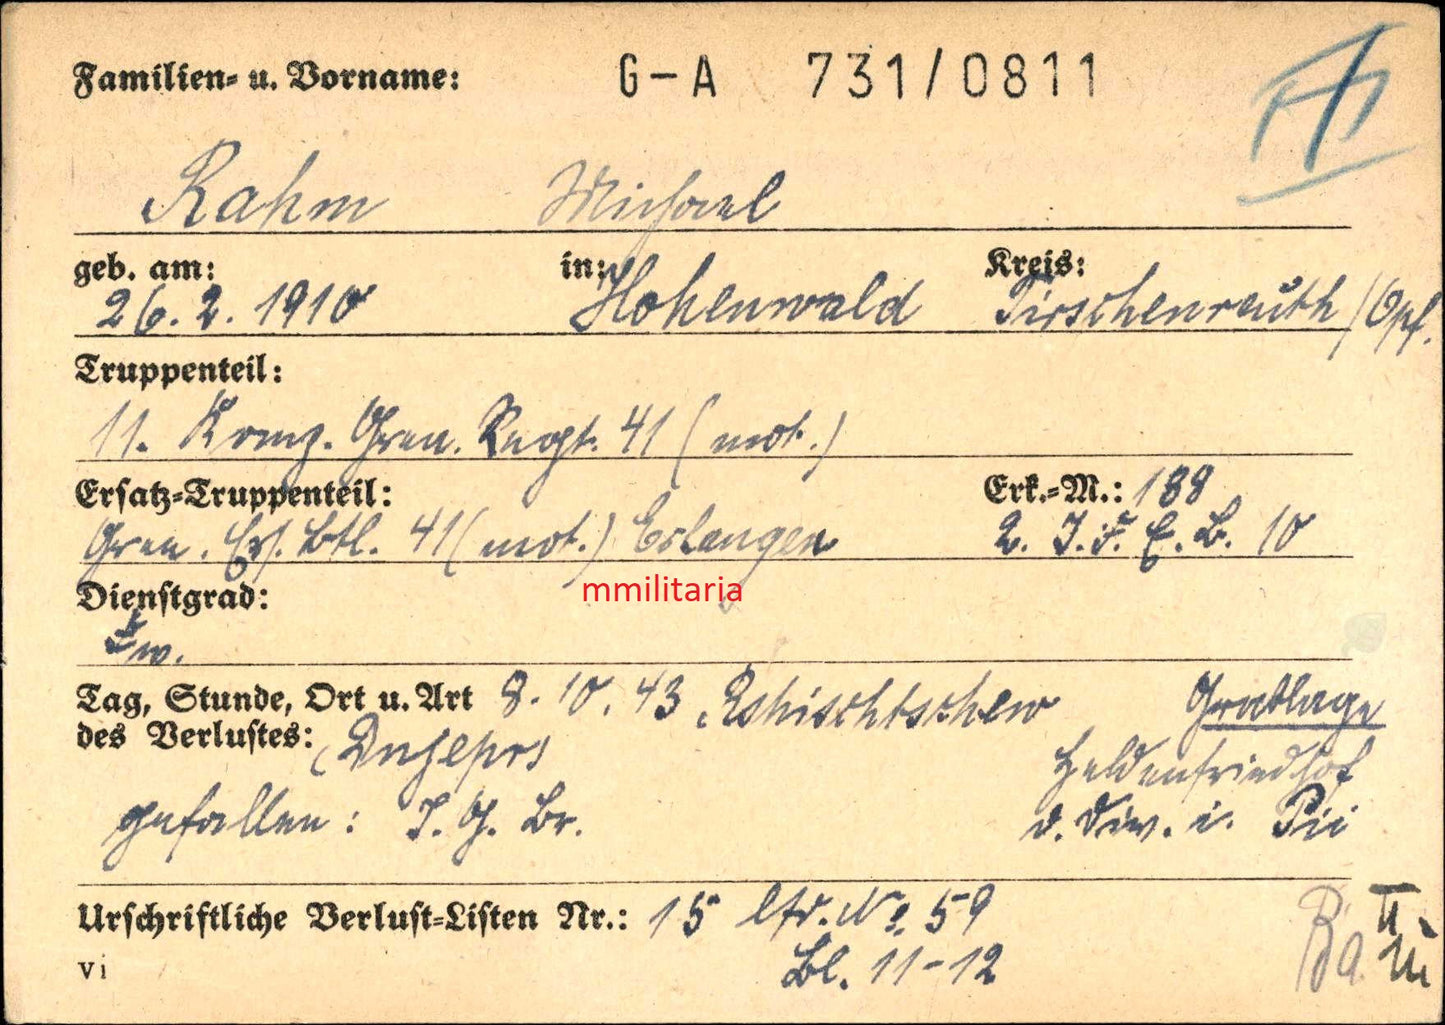 Familien- u. Vorname: G-A 731/0811
Rahm Michael
geb. am: in: Kreis:
26.2.1910 Hohenwald Tirschenreuth/Opf.
Truppenteil:
11. Gren. Regt. 41 (mot.)
Ersatz-Truppenteil: Erk.-M.: 188
Gren. Ers. Btl. 41 (mot.) Erlangen 2. I.F.E.B. 10
mmilitaria
Dienstgrad:
Tag, Stunde, Ort u. Art 8.10.43 Rshischtschew Grablage
des Verlustes: (Dnjepr) Heldenfriedhof
gefallen: I.G. Br. d. Div. i. Pii
Urschriftliche Verlust-Listen Nr.: 15 lfd. No. 59
Bl. 11-12
Vi